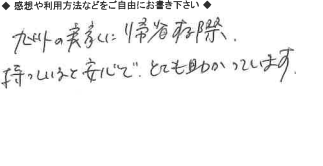 ◆ 感想や利用方法などをご自由にお書き下さい ◆
の実家に帰省する際、
持っていると安心で、とても助かっています。